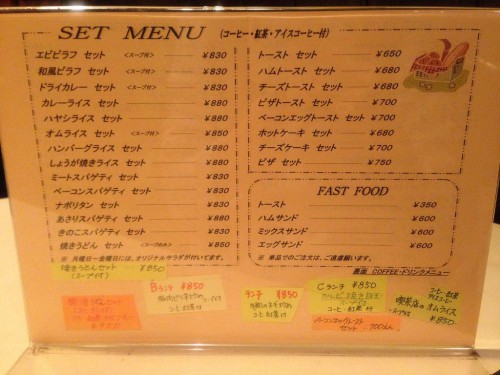 SET MENU (コーヒー・紅茶・アイスコーヒー付)
エビピラフ セット <スープ付> ¥830
和風ピラフ セット <スープ付> ¥830
ドライカレー セット <スープ付> ¥830
カレーライス セット ¥880
ハヤシライス セット ¥880
オムライス セット <スープ付> ¥850
ハンバーグライス セット ¥880
しょうが焼きライス セット ¥880
ミートスパゲティ セット ¥830
ベーコンスパゲティ セット ¥830
ナポリタン セット ¥830
あさりスパゲティ セット ¥880
きのこスパゲティ セット ¥830
焼きうどん セット <スープ付> ¥850
※ 月曜日～金曜日には、オリジナルサラダが付いてます。
トースト セット ¥650
ハムトースト セット ¥680
チーズトースト セット ¥680
ピザトースト セット ¥700
ベーコンエッグトースト セット ¥700
ホットケーキ セット ¥680
チーズケーキ セット ¥700
ピザ セット ¥750
FAST FOOD
トースト ¥350
ハムサンド ¥600
ミックスサンド ¥600
エッグサンド ¥600
※ 単品でのご注文は、ご遠慮願います。
裏面 COFFEE・ドリンクメニュー
焼きうどんセット ¥850
(スープ付)
Bランチ ¥850
コーヒー 紅茶付
ランチ ¥850
コーヒー 紅茶付
Cランチ ¥850
コーヒー・紅茶 付
ベーコンエッグトースト
セット 700
コーヒー・紅茶
喫茶店のオムライス
¥850